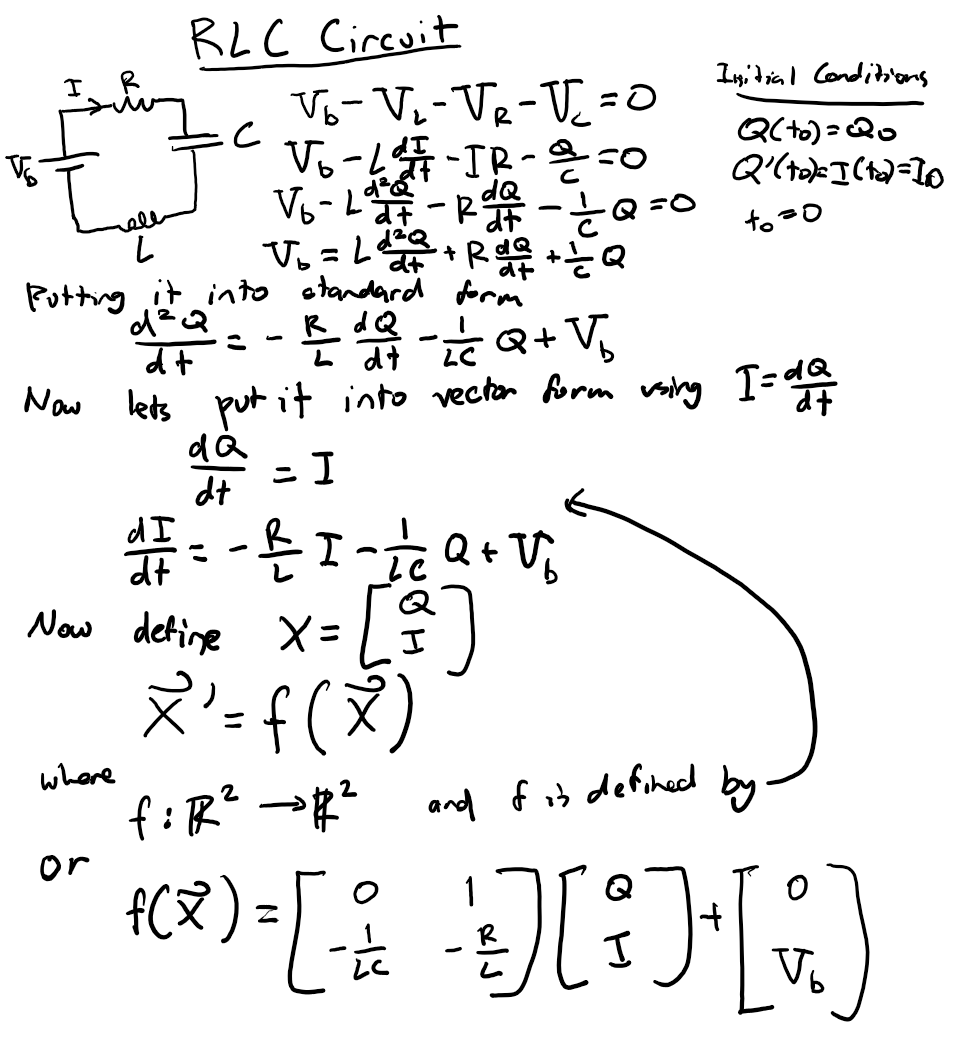 RLC Circuit
I R
V_b C
L
V_b - V_L - V_R - V_C = 0
V_b - L dI/dt - IR - Q/C = 0
V_b - L d²Q/dt - R dQ/dt - 1/C Q = 0
V_b = L d²Q/dt + R dQ/dt + 1/C Q
Initial Conditions
Q(t₀) = Q₀
Q'(t₀) = I(t₀) = I₀
t₀ = 0
Putting it into standard form
d²Q/dt = - R/L dQ/dt - 1/LC Q + V_b
Now lets put it into vector form using I = dQ/dt
dQ/dt = I
dI/dt = - R/L I - 1/LC Q + V_b
Now define X = [Q I]
X⃗' = f(X⃗)
where
f : ℝ² → ℝ² and f is defined by
or
f(X⃗) = [0 1 -1/LC -R/L] [Q I] + [0 V_b]